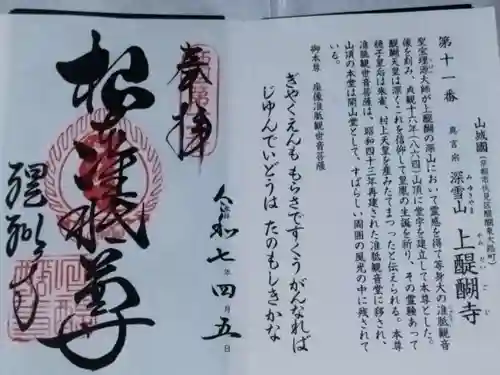 第十一番
山城國 (京都市伏見区醍醐東大路町)
真言宗 深雪山 上醍醐寺
みゆきやま かみだいごじ
聖宝理源大師が上醍醐の深山において霊感を得て等身大の准胝観音
像を刻み、貞観十六年(八六四)山頂に堂宇を建立して本尊とした。
醍醐天皇は深くこれを信仰して皇胤の生誕を祈り、その霊験あって
穏子皇后は朱雀、村上天皇を産みたまつったと伝えられる。本尊
准胝観世音菩薩は、昭和四十三年再建された准胝観音堂に移され、
山頂の本堂は開山堂として、すばらしい周囲の風光の中に残されて
いる。
御本尊 座像准胝観世音菩薩
ぎやくえんも もらさですくう がんなれば
じゆんでいどうは たのもしきかな
奉拝
令和七年四月五日
根本准胝尊
醍醐寺